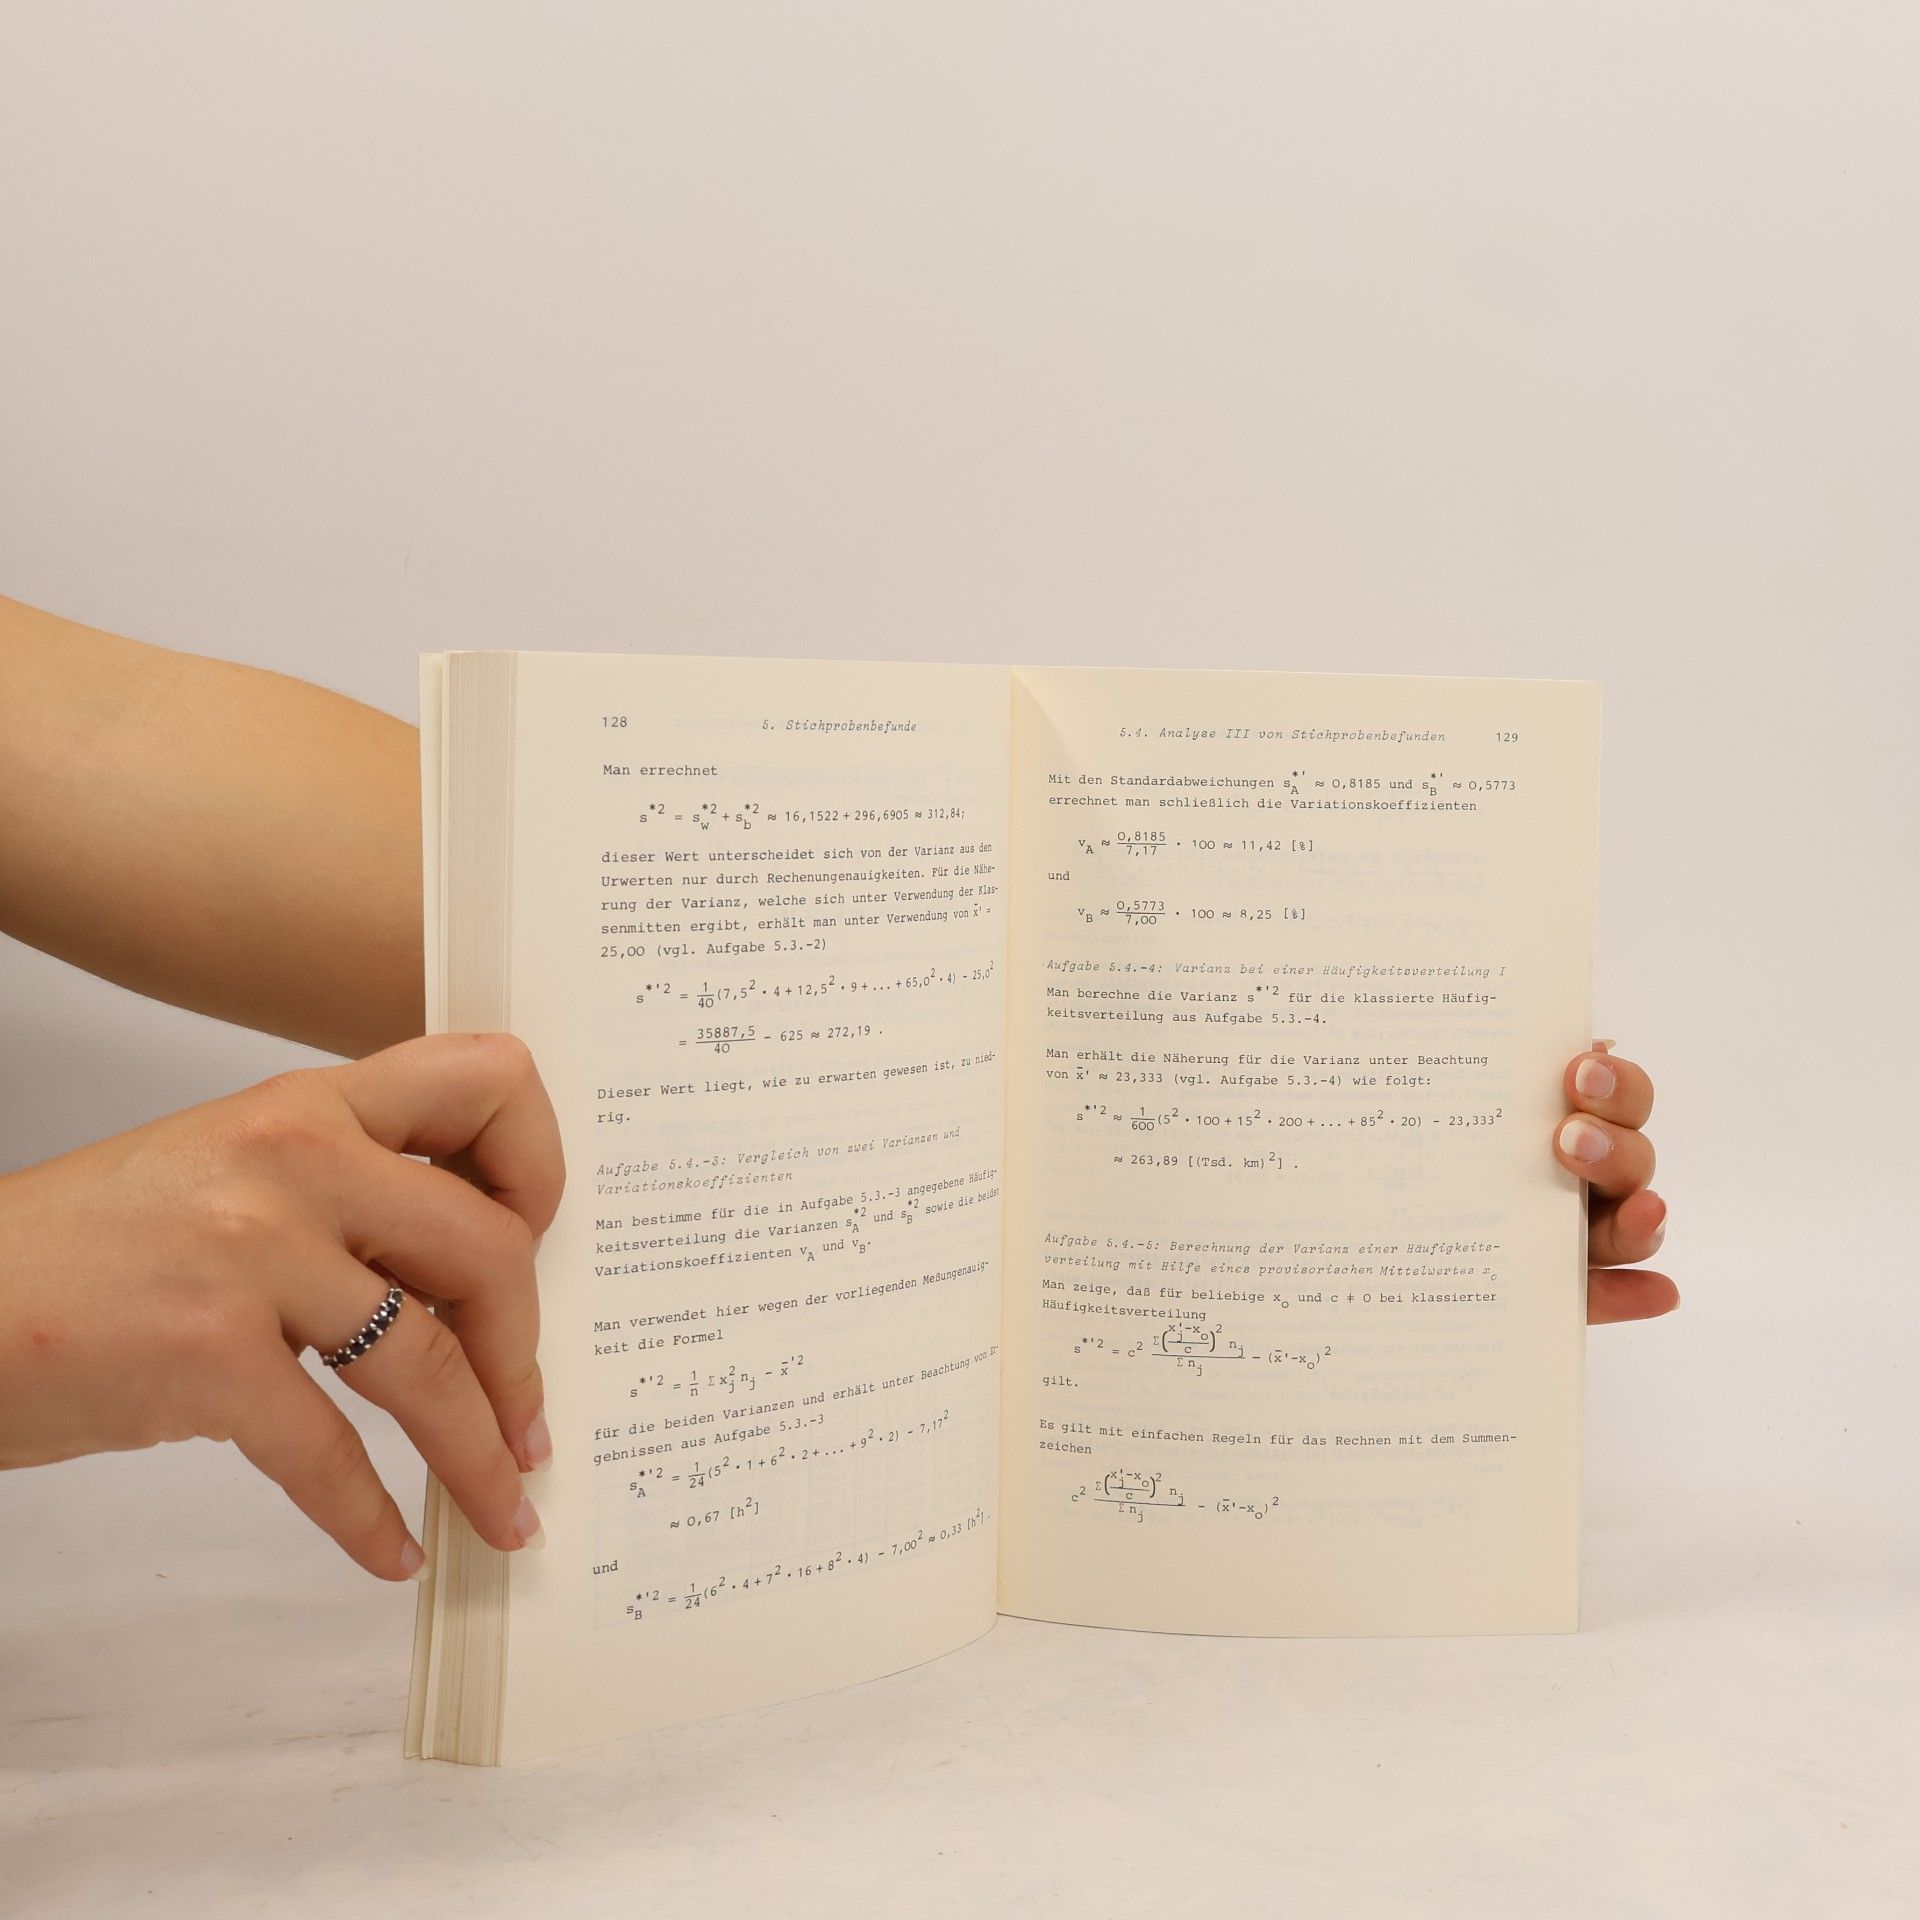 128
5. Stichprobenbefunde
Man errechnet
s*2 = s_w*2 + s_b*2 ≈ 16,1522 + 296,6905 ≈ 312,84;
dieser Wert unterscheidet sich von der Varianz aus den
Urwerten nur durch Rechenungenauigkeiten. Für die Nähe-
rung der Varianz, welche sich unter Verwendung der Klas-
senmitten ergibt, erhält man unter Verwendung von x̄' =
25,00 (vgl. Aufgabe 5.3.-2)
s*'2 = 1/40 (7,5² · 4 + 12,5² · 9 + ... + 65,0² · 4) - 25,0²
= 35887,5/40 - 625 ≈ 272,19 .
Dieser Wert liegt, wie zu erwarten gewesen ist, zu nied-
rig.
Aufgabe 5.4.-3: Vergleich von zwei Varianzen und
Variationskoeffizienten
Man bestimme für die in Aufgabe 5.3.-3 angegebene Häufig-
keitsverteilung die Varianzen s_A*2 und s_B*2 sowie die beiden
Variationskoeffizienten v_A und v_B.
Man verwendet hier wegen der vorliegenden Meßungenauig-
keit die Formel
s*'2 = 1/n Σ x_j² n_j - x̄'2
für die beiden Varianzen und erhält unter Beachtung von Er-
gebnissen aus Aufgabe 5.3.-3
s_A*'2 = 1/24 (5² · 1 + 6² · 2 + ... + 9² · 2) - 7,17²
≈ 0,67 [h²]
und
s_B*'2 = 1/24 (6² · 4 + 7² · 16 + 8² · 4) - 7,00² ≈ 0,33 [h²].
5.4. Analyse III von Stichprobenbefunden
129
Mit den Standardabweichungen s_A*' ≈ 0,8185 und s_B*' ≈ 0,5773
errechnet man schließlich die Variationskoeffizienten
v_A ≈ 0,8185/7,17 · 100 ≈ 11,42 [%]
und
v_B ≈ 0,5773/7,00 · 100 ≈ 8,25 [%]
Aufgabe 5.4.-4: Varianz bei einer Häufigkeitsverteilung I
Man berechne die Varianz s*'2 für die klassierte Häufig-
keitsverteilung aus Aufgabe 5.3.-4.
Man erhält die Näherung für die Varianz unter Beachtung
von x̄' ≈ 23,333 (vgl. Aufgabe 5.3.-4) wie folgt:
s*'2 ≈ 1/600 (5² · 100 + 15² · 200 + ... + 85² · 20) - 23,333²
≈ 263,89 [(Tsd. km)²] .
Aufgabe 5.4.-5: Berechnung der Varianz einer Häufigkeits-
verteilung mit Hilfe eines provisorischen Mittelwertes x_o
Man zeige, daß für beliebige x_o und c ≠ 0 bei klassierter
Häufigkeitsverteilung
s*'2 = c² Σ((x_j'-x_o)/c)² n_j / Σ n_j - (x̄'-x_o)²
gilt.
Es gilt mit einfachen Regeln für das Rechnen mit dem Summen-
zeichen
c² Σ((x_j'-x_o)/c)² n_j / Σ n_j - (x̄'-x_o)²